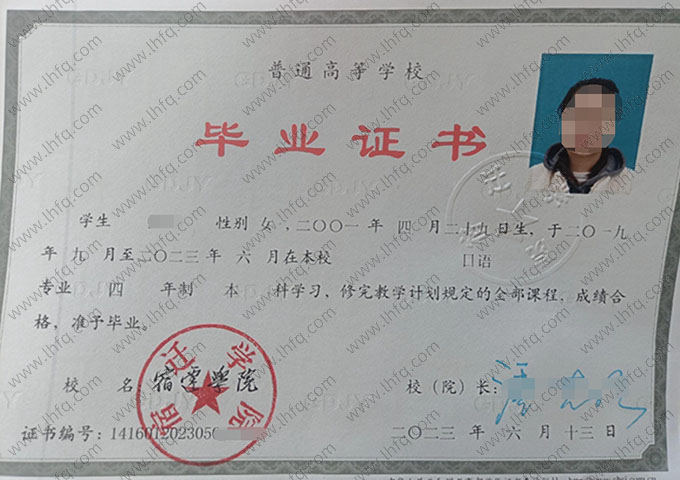 普通高等学校
毕业证书
学生 性别 女 ,二〇〇一 年 四 月二十九日生, 于二〇一九
年 九 月至二〇二三 年 六 月在本校 口语
专业 四 年制 本 科学习, 修完教学计划规定的全部课程, 成绩合
格, 准予毕业。
校 名 宿迁学院
校 (院) 长:
宿迁学院
证书编号: 1416012023050
二〇二三 年 六 月 十三 日
www.lhfq.com